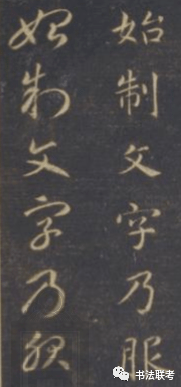 始制文字乃服
始制文字乃服
书法联考